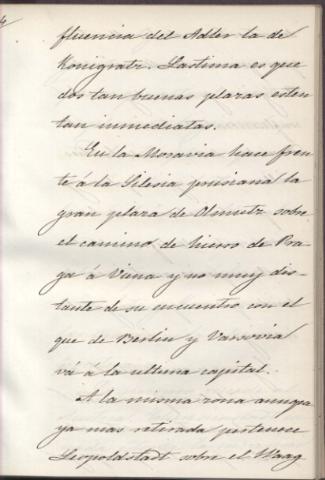 fluencia del Adler la de
Konigratz. Lastima es que
dos tan buenas plazas esten
tan inmediatas.
En la Moravia hace fren
te á la Silesia prusiana la
gran plaza de Olmutz sobre
el camino de hierro de Pra
ga á Viena y no muy dis
tante de su encuentro con el
que de Berlin y Varsovia
vá á la ultima capital.
A la misma zona aunque
ya mas retirada pertenece
Leopoldstadt sobre el Waag